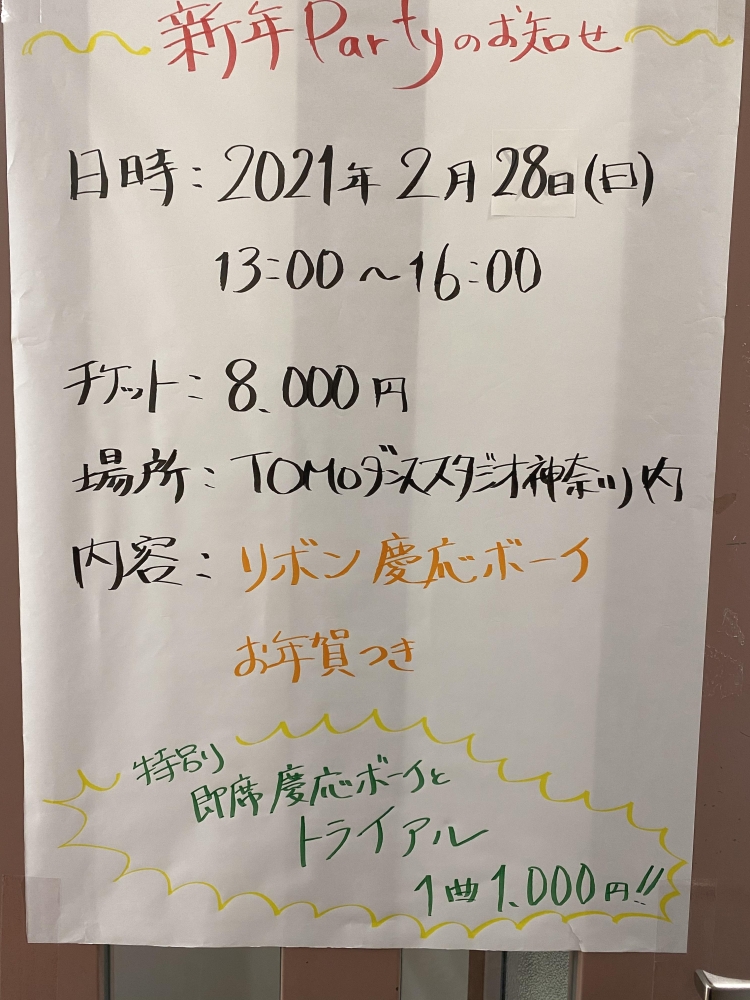 新年Partyのお知らせ
日時：2021年2月28日(日)
13:00～16:00
チケット：8.000円
場所：TOMOダンススタジオ神奈川内
内容：リボン慶応ボーイ
お年賀つき
特別
即席慶応ボーイと
トライアル
1曲1.000円!!